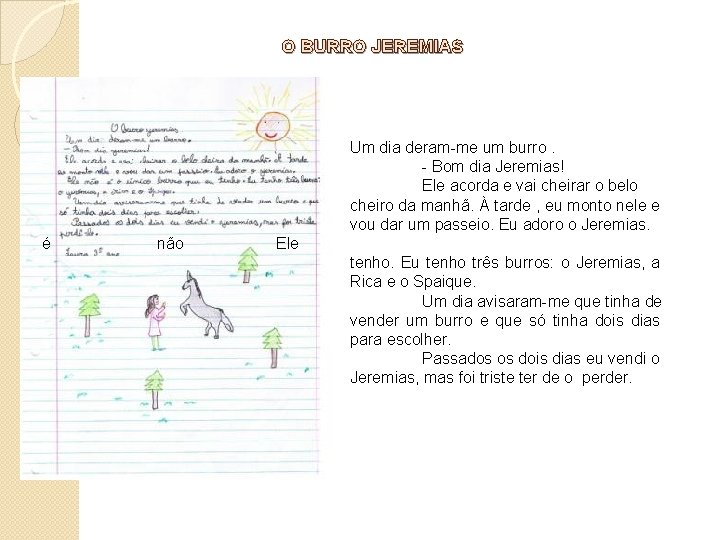 O BURRO JEREMIAS
O Burro Jeremias
Um dia deram-me um burro.
- Bom dia Jeremias!
Ele acorda e vai cheirar o belo cheiro da manhã. À tarde
eu monto nele e vou dar um passeio. Eu adoro o Jeremias.
Ele não é o único burro que eu tenho. Eu tenho três burros:
o Jeremias, a Rica e o
Um dia avisaram-me que tinha de vender um burro e que
só tinha dois dias para escolher.
Passados os dois dias eu vendi o Jeremias, mas foi
triste ter de o perder.
Laura 3º ano
Um dia deram-me um burro .
- Bom dia Jeremias!
Ele acorda e vai cheirar o belo
cheiro da manhã. À tarde , eu monto nele e
vou dar um passeio. Eu adoro o Jeremias.
é não Ele
tenho. Eu tenho três burros: o Jeremias, a
Rica e o Spaique.
Um dia avisaram-me que tinha de
vender um burro e que só tinha dois dias
para escolher.
Passados os dois dias eu vendi o
Jeremias, mas foi triste ter de o perder.